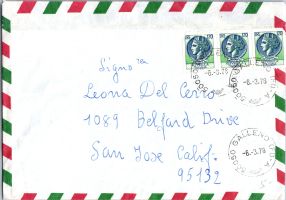 170 170 170
Signora
Leona Del Cerro
1089 Belford Drive
San Jose Calif.
95132
-6.-3.79
-6.-3.79
50050 GALLENO (FI) A
-6.-3.79